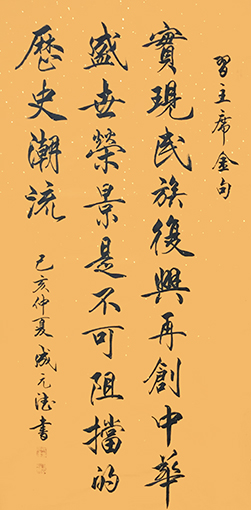 習主席金句
實現民族復興再創中華
盛世榮景是不可阻擋的
歷史潮流
己亥仲夏成元德書